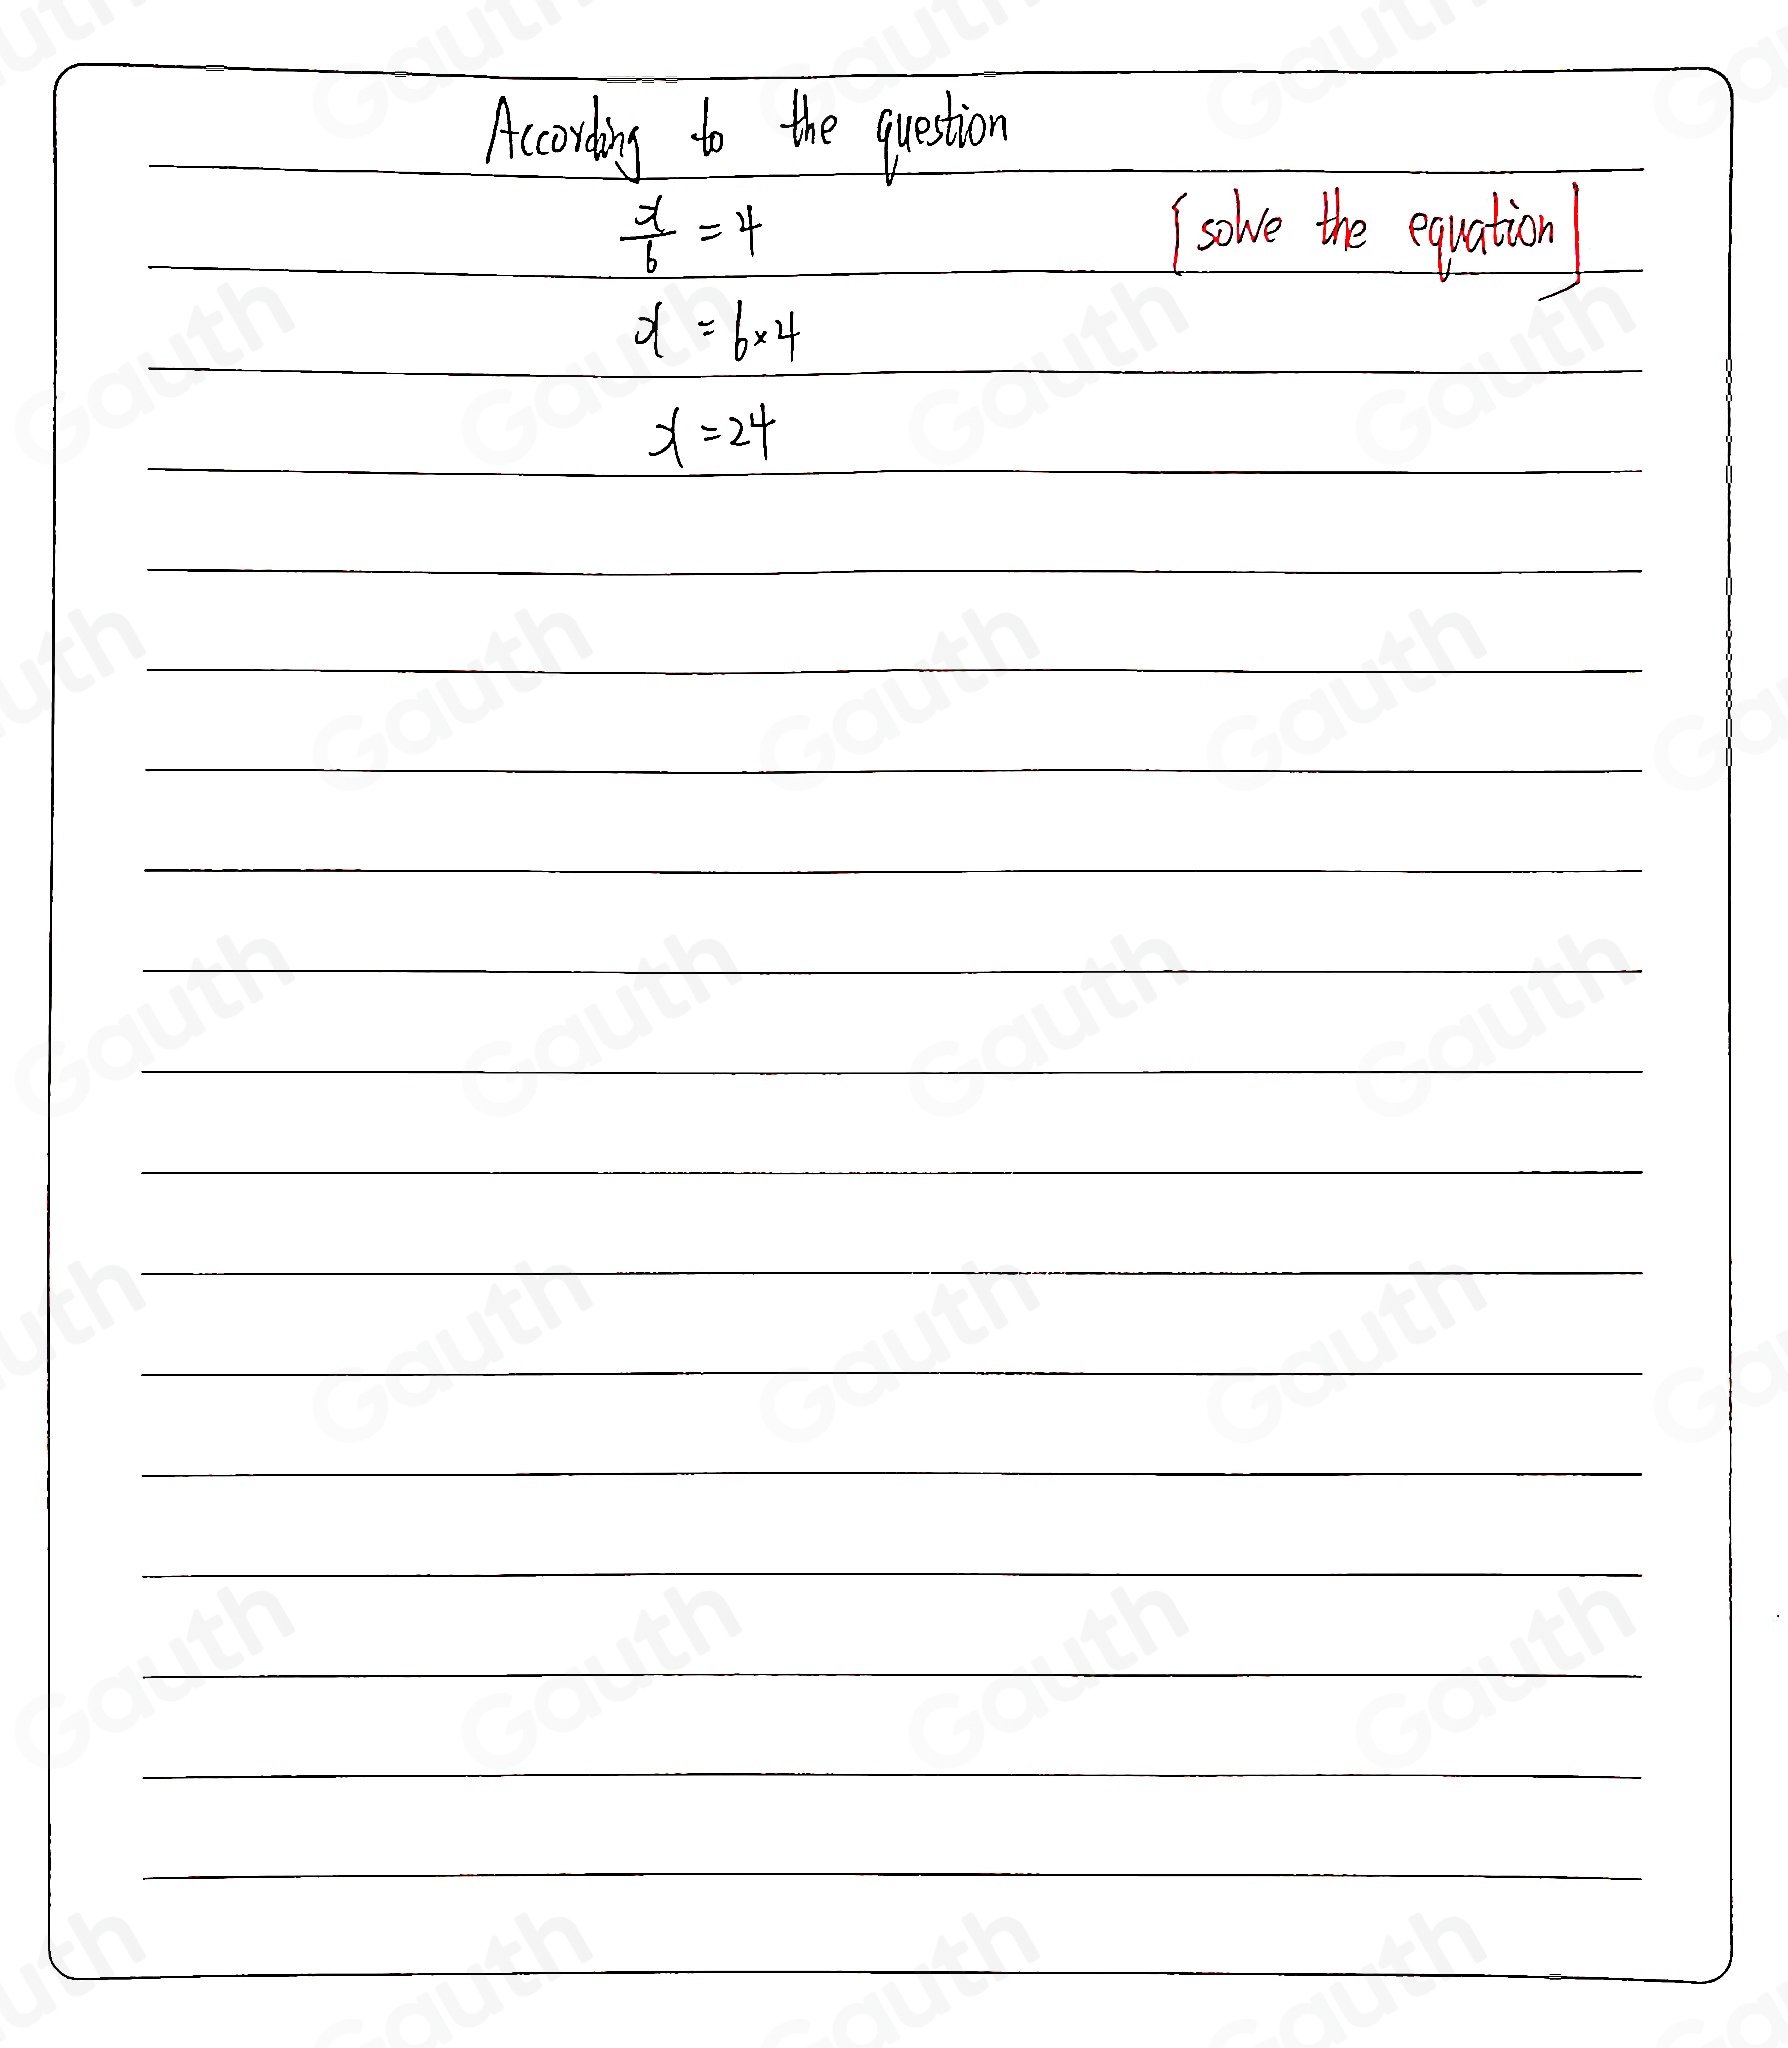 According to the question
x/6 = 4 [solve the equation]
x = 6×4
x = 24